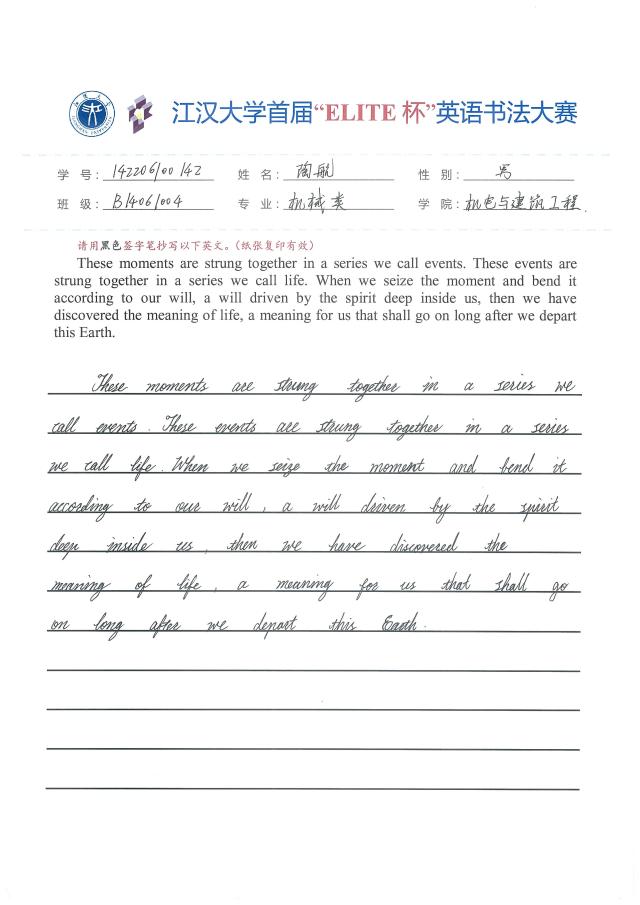 江汉大学首届“ELITE 杯”英语书法大赛
学 号: 142206100142 姓 名: 陶航 性 别: 男
班 级: B14061004 专 业: 机械类 学 院: 机电与建筑工程
请用黑色签字笔抄写以下英文。(纸张复印有效)
These moments are strung together in a series we call events. These events are
strung together in a series we call life. When we seize the moment and bend it
according to our will, a will driven by the spirit deep inside us, then we have
discovered the meaning of life, a meaning for us that shall go on long after we depart
this Earth.
These moments are strung together in a series we
call events. These events are strung together in a series
we call life. When we seize the moment and bend it
according to our will, a will driven by the spirit
deep inside us, then we have discovered the
meaning of life, a meaning for us that shall go
on long after we depart this Earth.